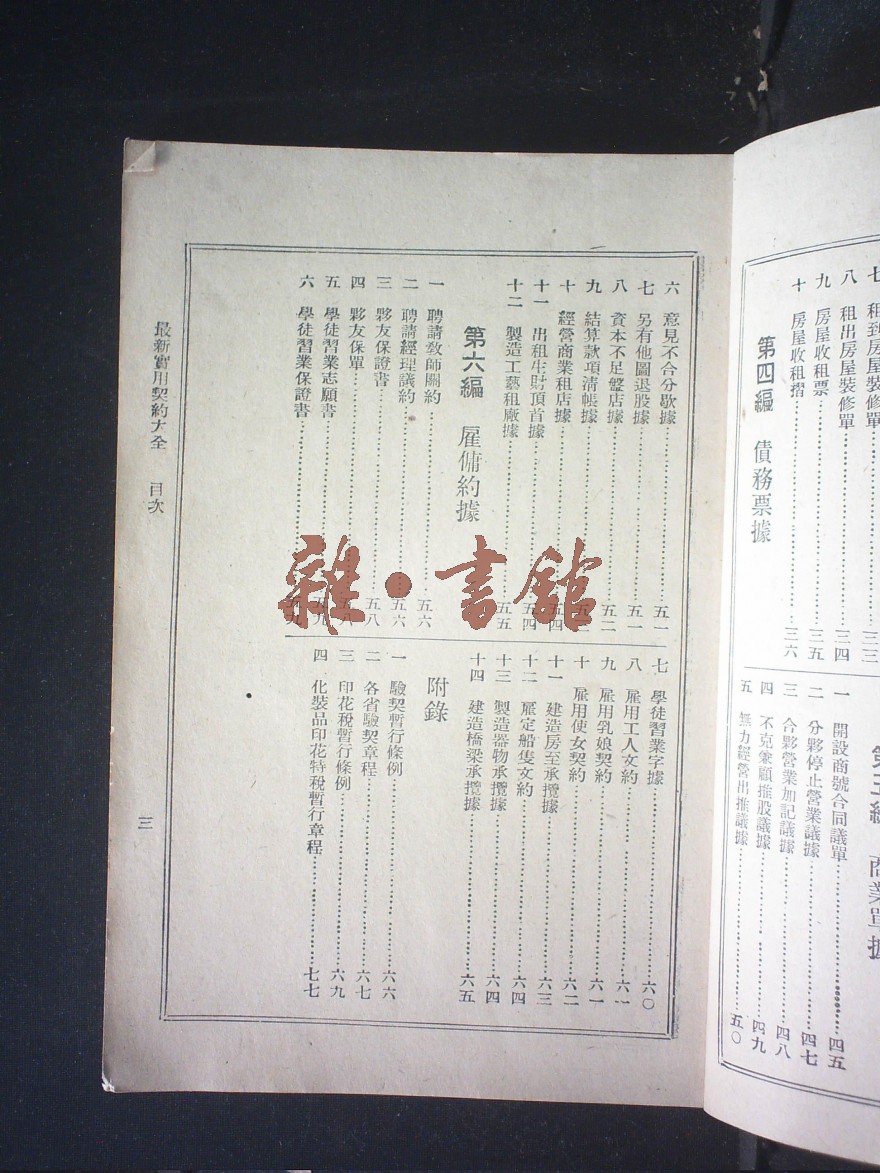 租到房屋裝修單……三三
八 租出房屋裝修單……三四
九 房屋收租票……三五
十 房屋收租摺……三六
第四編 債務票據
商業單據
一 開設商號合同議單……四五
二 分夥停止營業議據……四七
三 合夥營業加記議據……四八
四 不克兼顧推股議據……四九
五 無力經營出推議據……五〇
六 意見不合分歇據……五一
七 另有他圖退股據……五一
八 資本不足盤店據……五二
九 結算款項清帳據
十 經營商業租店據……五四
十一 出租生財頂首據……五四
十二 製造工藝租廠據……五五
第六編 雇傭約據
一 聘請敎師關約……五六
二 聘請經理議約……五六
三 夥友保證書……五八
四 夥友保單……五八
五 學徒習業志願書……五九
六 學徒習業保證書……五九
七 學徒習業字據……六〇
八 雇用工人文約……六一
九 雇用乳娘契約……六一
十 雇用使女契約……六二
十一 建造房至承攬據……六三
十二 雇定船隻文約……六四
十三 製造器物承攬據……六四
十四 建造橋梁承攬據……六五
附錄
一 驗契暫行條例……六六
二 各省驗契章程……六七
三 印花稅暫行條例……六九
四 化裝品印花特稅暫行章程……七七
最新實用契約大全 目次
三
雜·書館